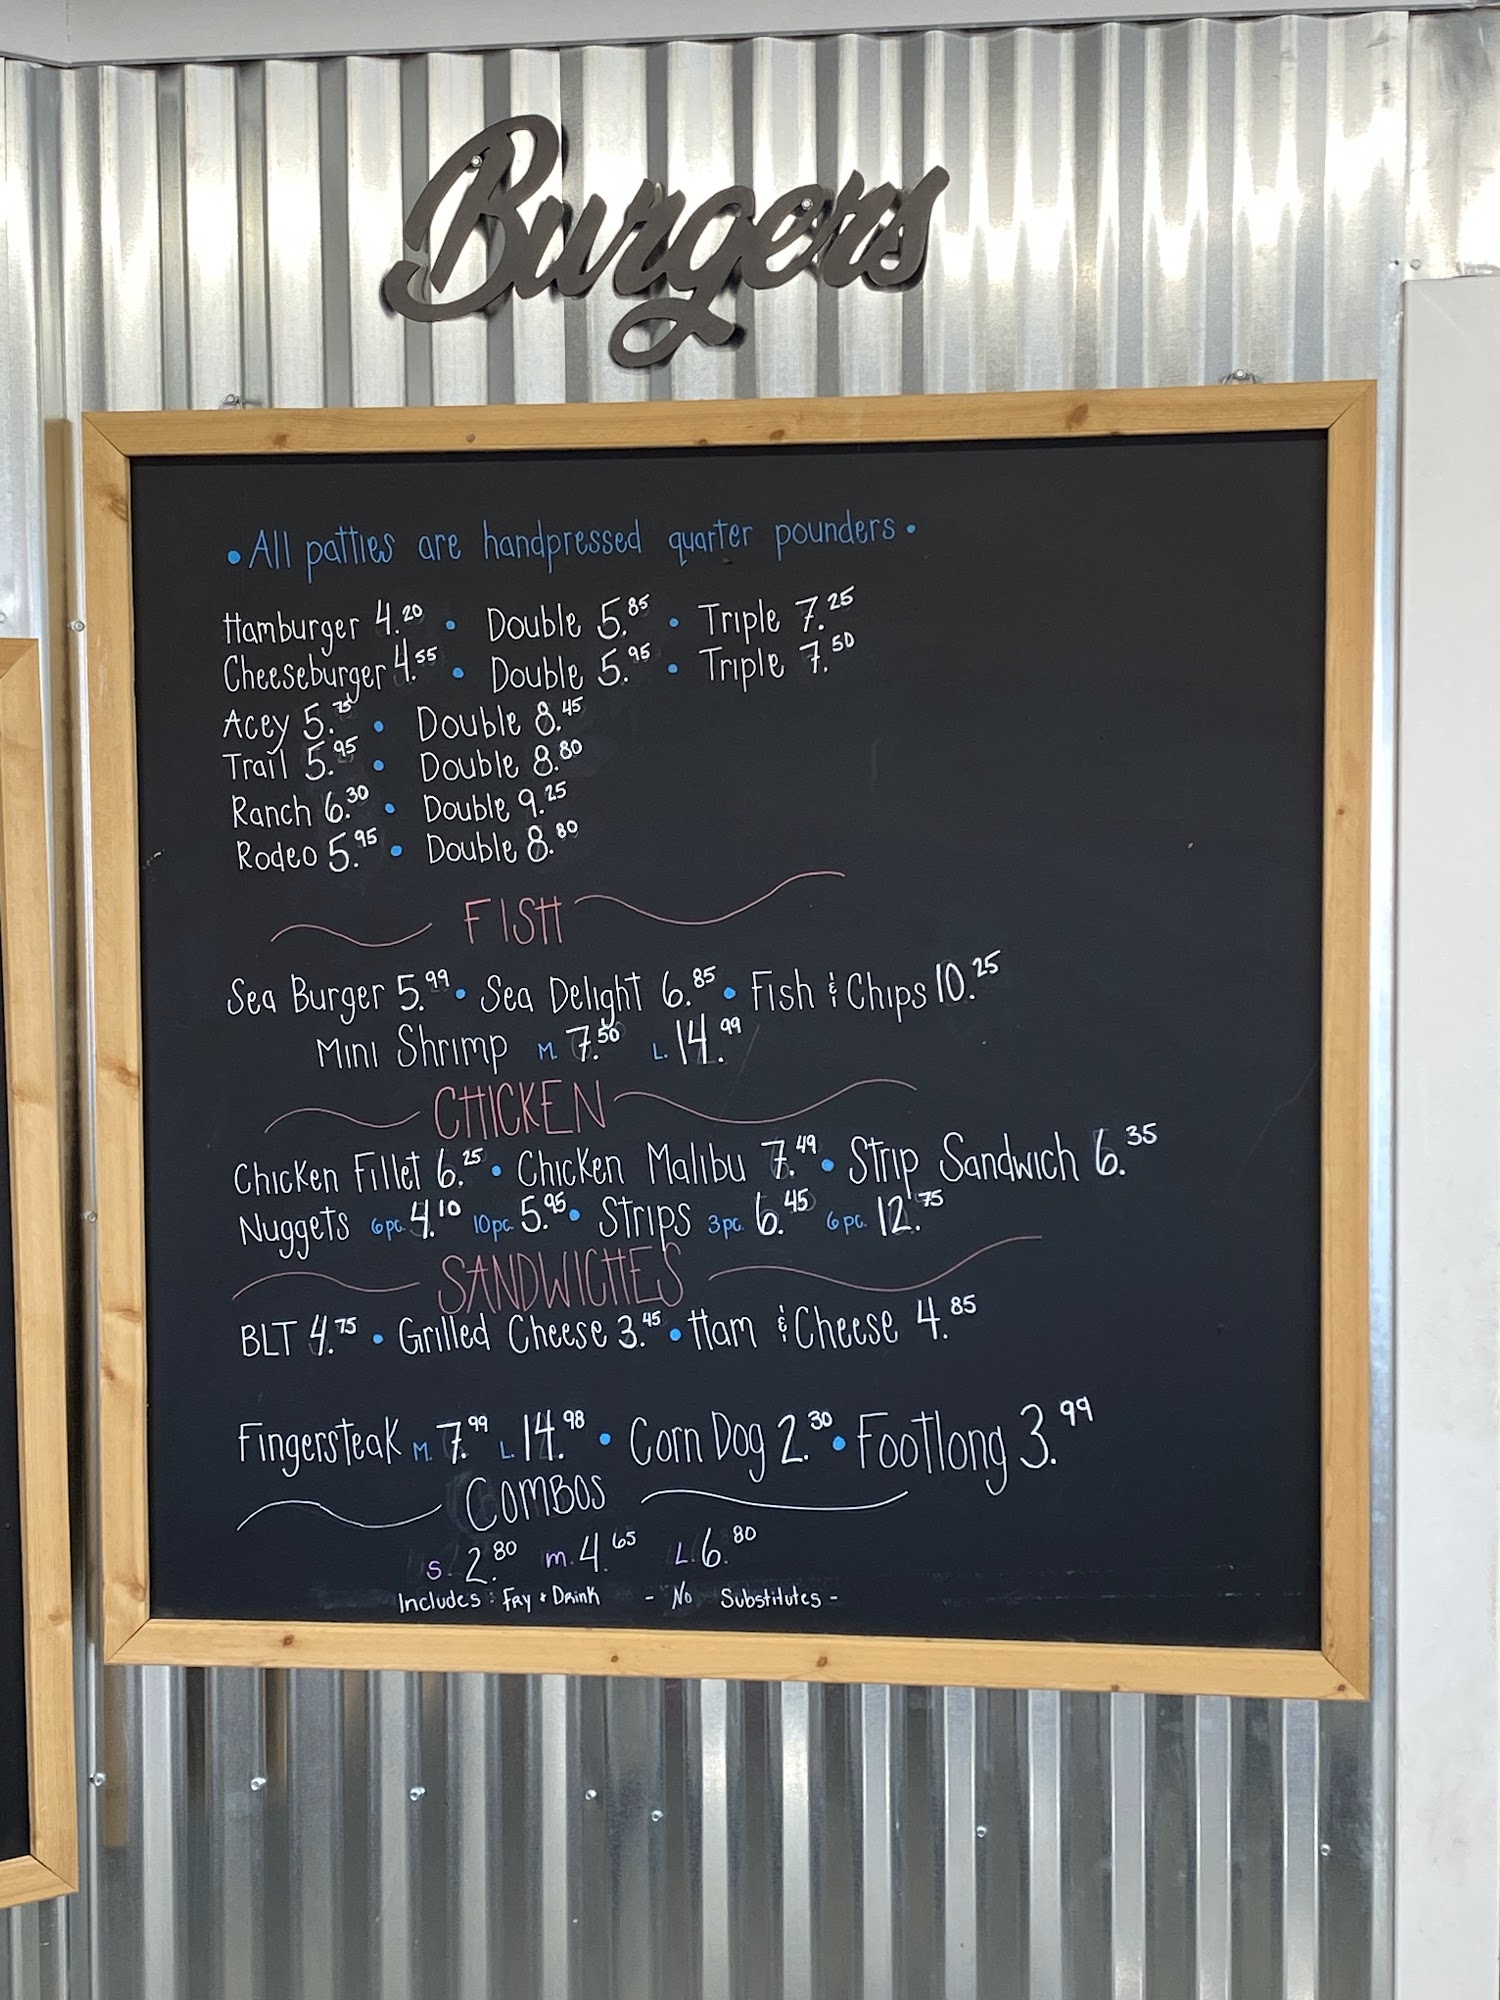 Burgers
• All patties are handpressed quarter pounders •
Hamburger 4.20 • Double 5.85 • Triple 7.25
Cheeseburger 4.55 • Double 5.95 • Triple 7.50
Acey 5.75 • Double 8.45
Trail 5.95 • Double 8.80
Ranch 6.30 • Double 9.25
Rodeo 5.95 • Double 8.80
FISH
Sea Burger 5.99 • Sea Delight 6.85 • Fish & Chips 10.25
Mini Shrimp M. 7.50 L. 14.99
CHICKEN
Chicken Fillet 6.25 • Chicken Malibu 7.49 • Strip Sandwich 6.35
Nuggets 6pc. 4.10 10pc. 5.95 • Strips 3pc. 6.45 6pc. 12.75
SANDWICHES
BLT 4.75 • Grilled Cheese 3.45 • Ham & Cheese 4.85
Fingersteak M. 7.99 L. 14.98 • Corn Dog 2.30 • Footlong 3.99
COMBOS
S. 2.80 M. 4.65 L. 6.80
Includes: Fry & Drink - No Substitutes -